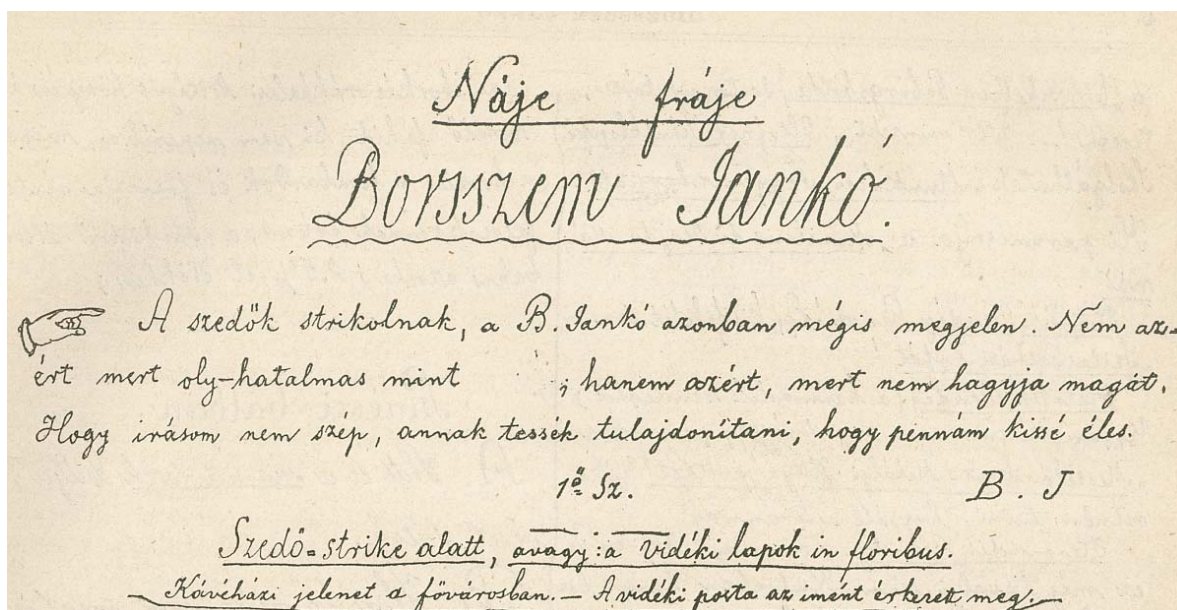 Náje fráje
Borsszem Jankó.
A szedők strikolnak, a B. Jankó azonban mégis megjelen. Nem az-
ért mert oly-hatalmas mint ; hanem azért, mert nem hagyja magát.
Hogy irásom nem szép, annak tessék tulajdonítani, hogy pennám kissé éles.
1ő Sz. B. J
Szedő-strike alatt, avagy: a vidéki lapok in floribus.
Kávéházi jelenet a fővárosban. — A vidéki posta az imént érkezett meg. —